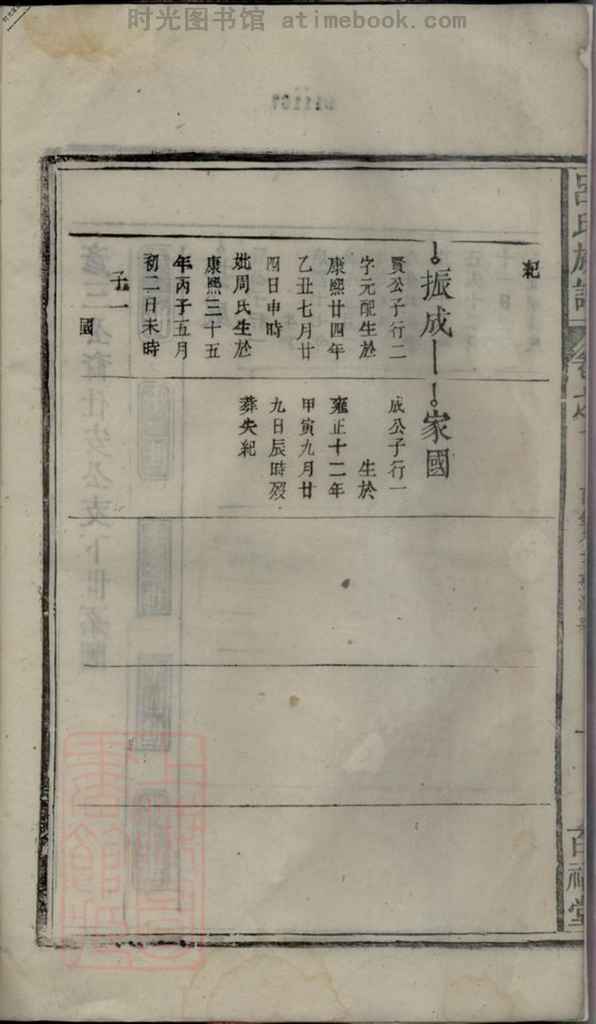 时光图书馆 atimebook.com
呂氏族譜
百祿堂
紀
振成
賢公子行二
字元配生於
康熙廿四年
乙丑七月廿
四日申時
妣周氏生於
康熙三十五
年丙子五月
初二日未時
子一
國
家國
成公子行一
生於
雍正十二年
甲寅九月廿
九日辰時歿
葬失紀